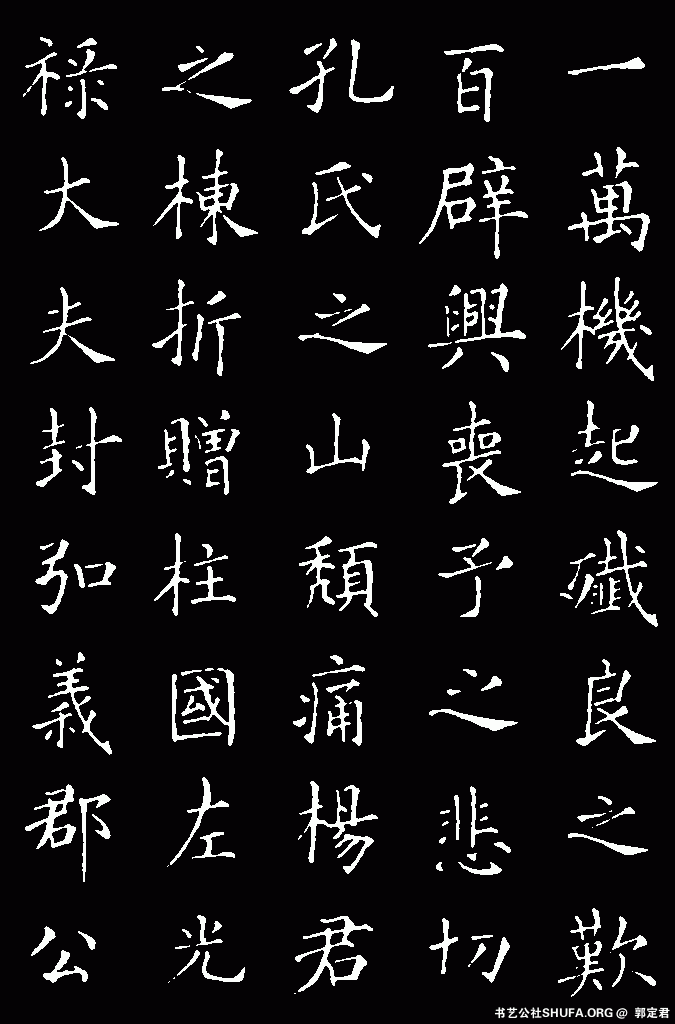 一萬機起殲良之歎
百辟興喪予之悲切
孔氏之山頹痛楊君
之棟折贈柱國左光
祿大夫封弘義郡公
书艺公社SHUFA.ORG @ 郭定君